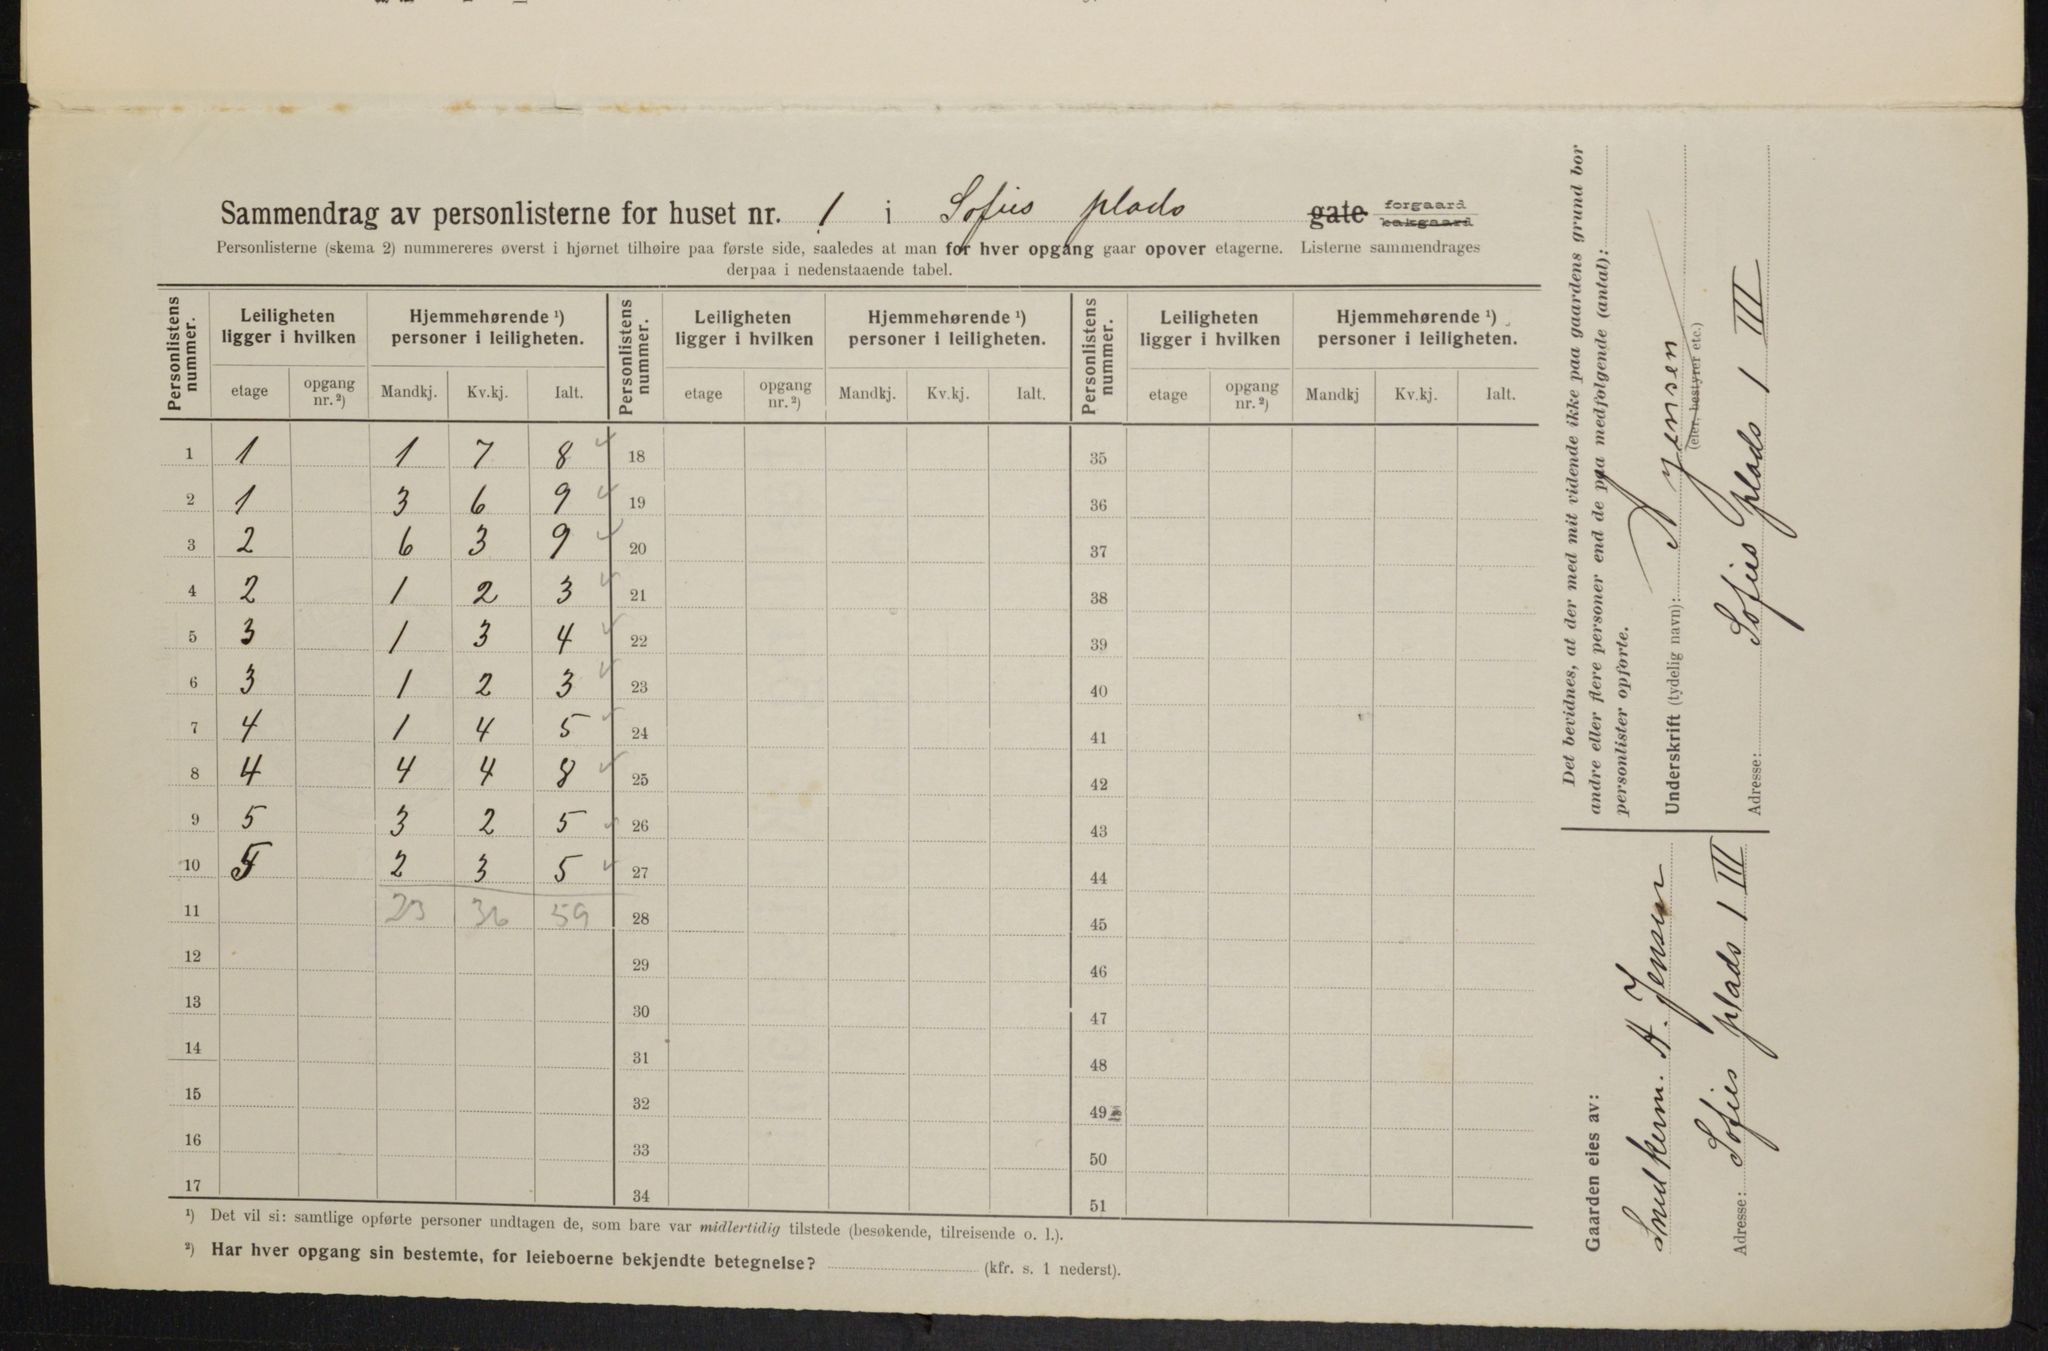 Sammendrag av personlisterne for huset nr. 1 i Sofies plads gate forgaard bakgaard
Personlisterne (skema 2) nummereres øverst i hjørnet tilhøire paa første side, saaledes at man for hver opgang gaar opover etagerne. Listerne sammendrages
derpaa i nedenstaaende tabel.
Personlistens nummer. Leiligheten ligger i hvilken Hjemmehørende ¹) personer i leiligheten. Personlistens nummer. Leiligheten ligger i hvilken Hjemmehørende ¹) personer i leiligheten. Personlistens nummer. Leiligheten ligger i hvilken Hjemmehørende ¹) personer i leiligheten.
etage opgang nr. ²) Mandkj. Kv.kj. Ialt. etage opgang nr. ²) Mandkj. Kv.kj. Ialt. etage opgang nr. ²) Mandkj Kv.kj. Ialt.
1 1 1 7 8 ✓ 18 35
2 1 3 6 9 ✓ 19 36
3 2 6 3 9 ✓ 20 37
4 2 1 2 3 ✓ 21 38
5 3 1 3 4 ✓ 22 39
6 3 1 2 3 ✓ 23 40
7 4 1 4 5 ✓ 24 41
8 4 4 4 8 ✓ 25 42
9 5 3 2 5 ✓ 26 43
10 5 2 3 5 ✓ 27 44
11 23 36 59 28 45
12 29 46
13 30 47
14 31 48
15 32 49
16 33 50
17 34 51
¹) Det vil si: samtlige opførte personer undtagen de, som bare var midlertidig tilstede (besøkende, tilreisende o. l.).
²) Har hver opgang sin bestemte, for leieboerne bekjendte betegnelse? (kfr. s. 1 nederst).
Det bevidnes, at der med mit vidende ikke paa gaardens grund bor
andre eller flere personer end de paa medfølgende (antal):
personlister opførte.
Underskrift (tydelig navn): A Jensen
(eier, bestyrer etc.)
Adresse: Sofies plads 1 III
Gaarden eies av:
Snedkerm. A. Jensen
Adresse: Sofies plads 1 III